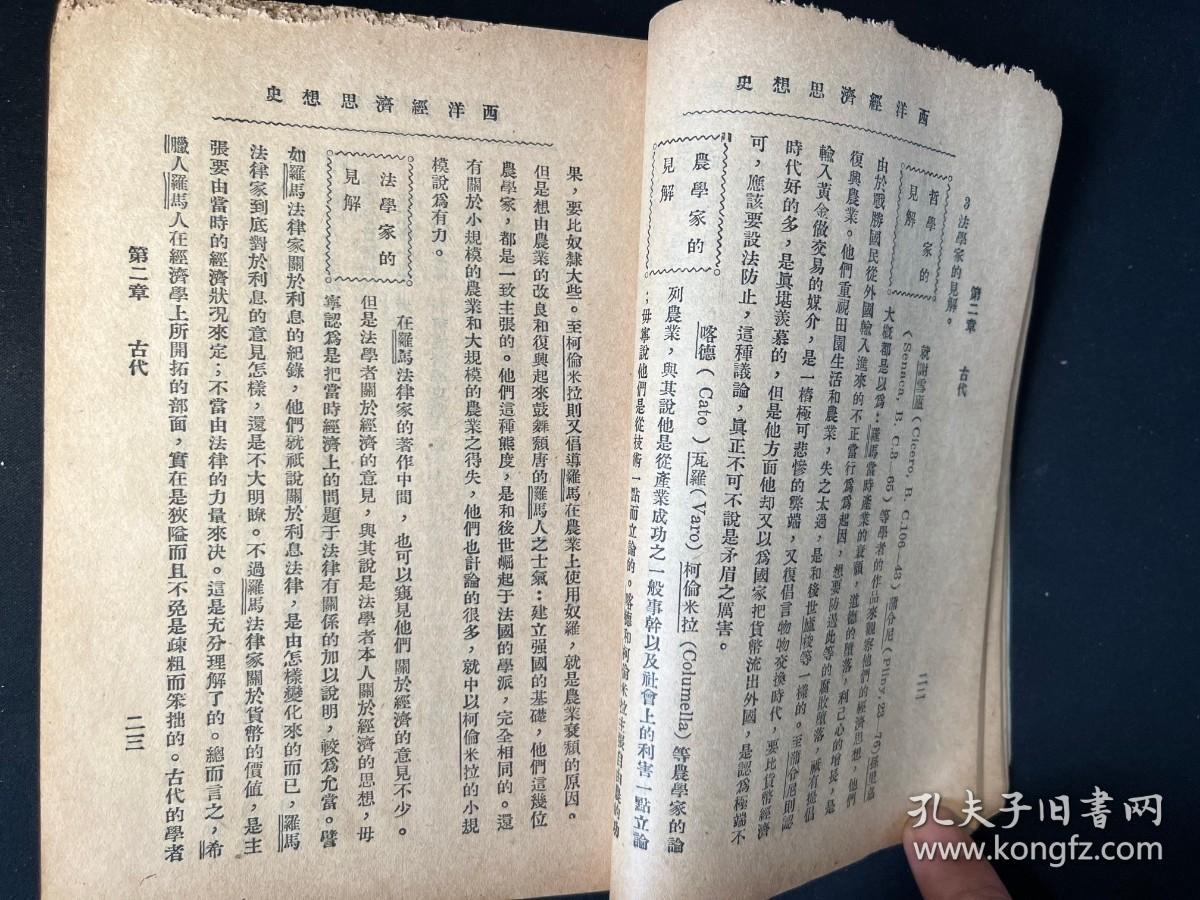 西洋經濟思想史
第二章 古代 二二
3 法學家的見解。
哲學家的
見解
就謝雪廬(Cicero, B. C.106—43)蒲令尼(Pliny, 23—76)孫尼迦
(Senneca, B. C.3—65)等學者的作品來觀察他們的經濟思想,他們
大概都是以爲:羅馬當時產業的衰頹,道德的墮落,利己心的增長,是
由於戰勝國民從外國輸入進來的不正當行爲爲起因,想要防遏此等的腐敗墮落,祇有提倡
復興農業。他們重視田園生活和農業,失之太過,是和後世盧梭等一樣的。至蒲令尼則認
輸入黃金做交易的媒介,是一樁極可悲慘的弊端,又復倡言物物交換時代,要比貨幣經濟
時代好的多,是眞堪羨慕的,但是他方面他却又以爲國家把貨幣流出外國,是認爲極端不
可,應該要設法防止,這種議論,眞正不可不說是矛眉之厲害。
農學家的
見解
喀德(Cato)瓦羅(Varo)柯倫米拉(Columella)等農學家的論
列農業,與其說他是從產業成功之一般事幹以及社會上的利害一點立論
;毋寧說他們是從技術一點而立論的。喀德和柯倫米拉主張自由農的功
西洋經濟思想史
果,要比奴隸大些。至柯倫米拉則又倡導羅馬在農業上使用奴羅,就是農業衰頹的原因。
但是想由農業的改良和復興起來鼓舞頹唐的羅馬人之士氣:建立强國的基礎,他們這幾位
農學家,都是一致主張的。他們這種態度,是和後世崛起于法國的學派,完全相同的。還
有關於小規模的農業和大規模的農業之得失,他們也討論的很多,就中以柯倫米拉的小規
模說爲有力。
法學家的
見解
在羅馬法律家的著作中間,也可以窺見他們關於經濟的意見不少。
但是法學者關於經濟的意見,與其說是法學者本人關於經濟的思想,毋
寧認爲是把當時經濟上的問題于法律有關係的加以說明,較爲允當。譬
如羅馬法律家關於利息的紀錄,他們就祇說關於利息法律,是由怎樣變化來的而已,羅馬
法律家到底對於利息的意見怎樣,還是不大明瞭。不過羅馬法律家關於貨幣的價值,是主
張要由當時的經濟狀況來定;不當由法律的力量來决。這是充分理解了的。總而言之,希
臘人羅馬人在經濟學上所開拓的部面,實在是狹隘而且不免是疎粗而笨拙的。古代的學者
第二章 古代 二三
孔夫子旧書网
www.kongfz.com